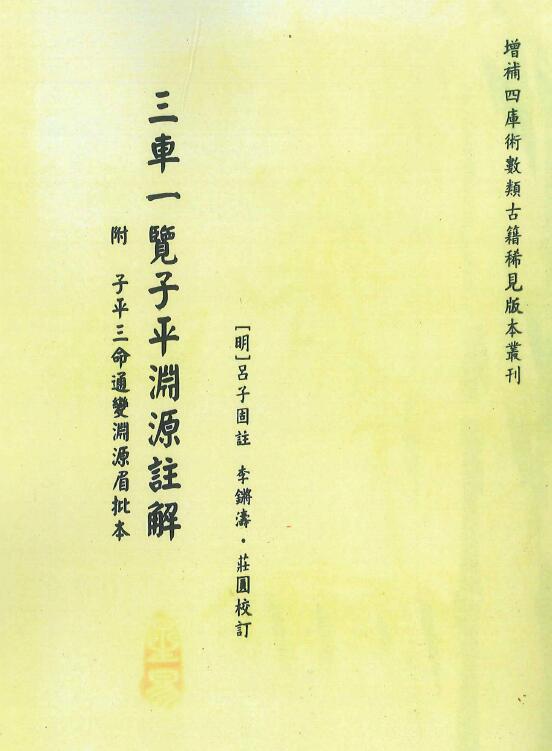 增補四庫術數類古籍稀見版本叢刊
[明]呂子固註 李鏘濤·莊圓校訂
三車一覽子平淵源註解
附 子平三命通變淵源眉批本